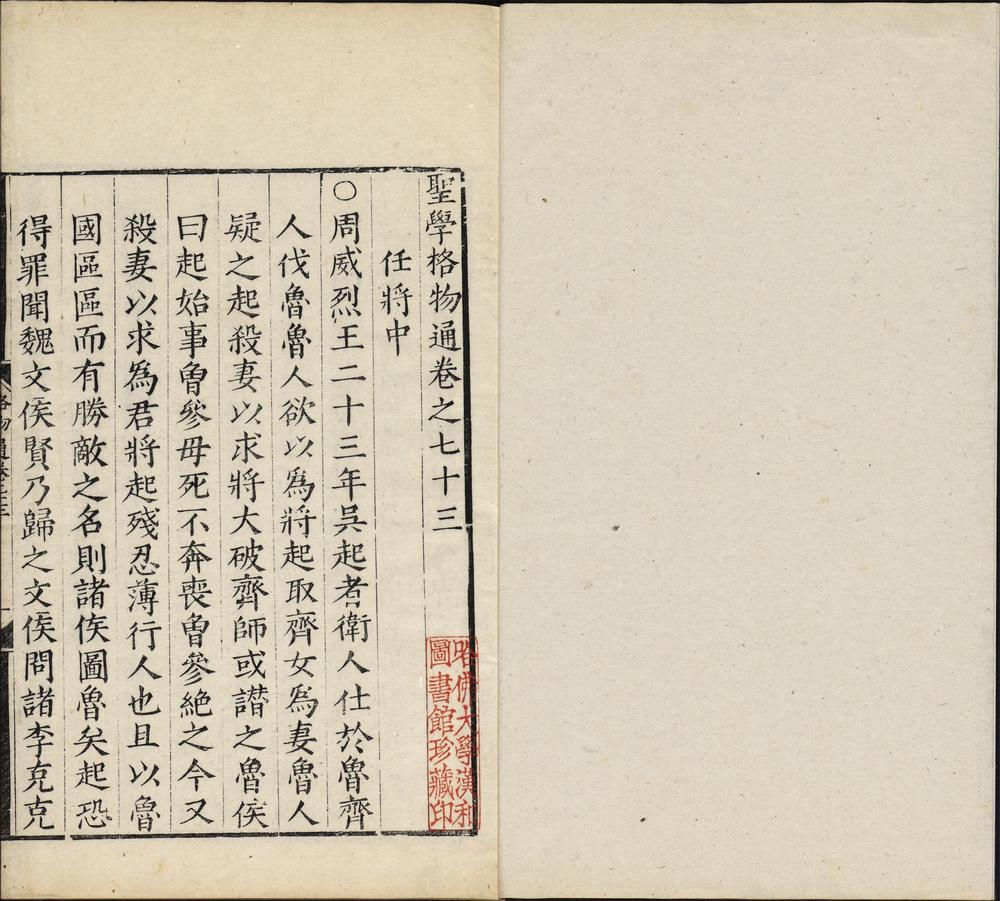 聖學格物通卷之七十三
任將中
○周威烈王二十三年吳起者衛人仕於魯齊
人伐魯魯人欲以為將起取齊女為妻魯人
疑之起殺妻以求將大破齊師或譖之魯侯
曰起始事曾參母死不奔喪曾參絕之今又
殺妻以求為君將起殘忍薄行人也且以魯
國區區而有勝敵之名則諸侯圖魯矣起恐
得罪聞魏文侯賢乃歸之文侯問諸李克克
哈佛大學漢和
圖書館珍藏印